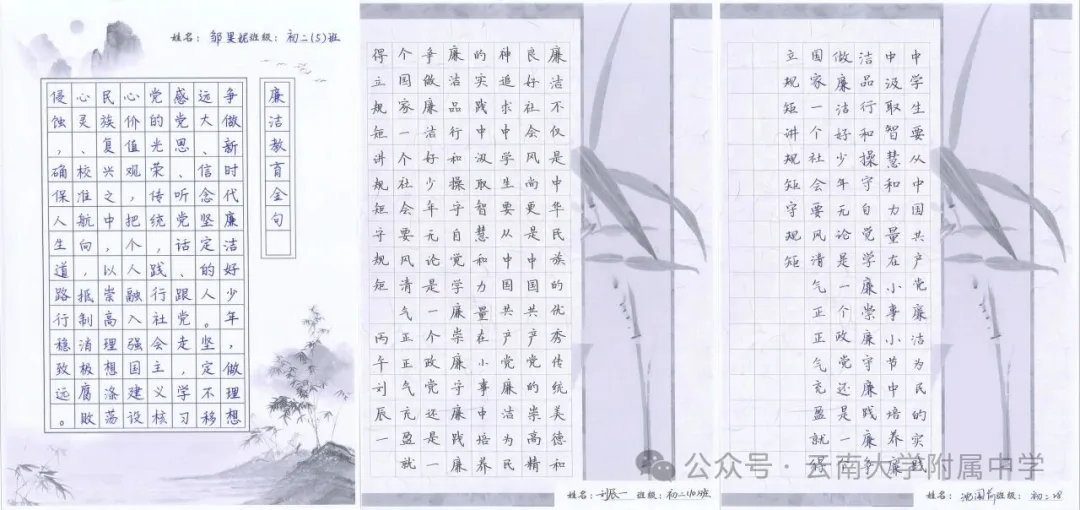 姓名：邹昊妮 班级：初二(5)班
廉洁教育金句
争做新时代廉洁好少年，做理想
远大、信念坚定的人。坚定不移
感党思、听党话、跟党走，学习
党的光荣传统，践行社会主义核
心价值观，把个人融入强国建设
民族复兴之中，以崇高理想涤荡
心灵、校准航向，抵制清极腐败
侵蚀，确保人生道路行稳致远。
廉洁不仅是中华民族的优秀传统美德和
良好社会风尚更是中国共产党的崇高精
神追求中学生要从中国共产党廉洁为民
的实践中汲取智慧和力量在小事中培养
廉洁品行和操守自觉学廉崇廉守廉践廉
争做廉洁好少年无论是一个政党还是一
个国家一个社会要风清气正正气充盈就
得立规矩讲规矩守规矩 丙午刘辰一
姓名：刘辰一 班级：初二(10)班
中学生要从中国共产党廉洁为民的实践
中汲取智慧和力量在小事小节中培养廉
洁品行和操守自觉学廉崇廉守廉践廉争
做廉洁好少年无论是一个政党还是一个
国家一个社会要风清气正正气充盈就得
立规矩讲规矩守规矩
姓名： 班级：初二
公众号·云南大学附属中学